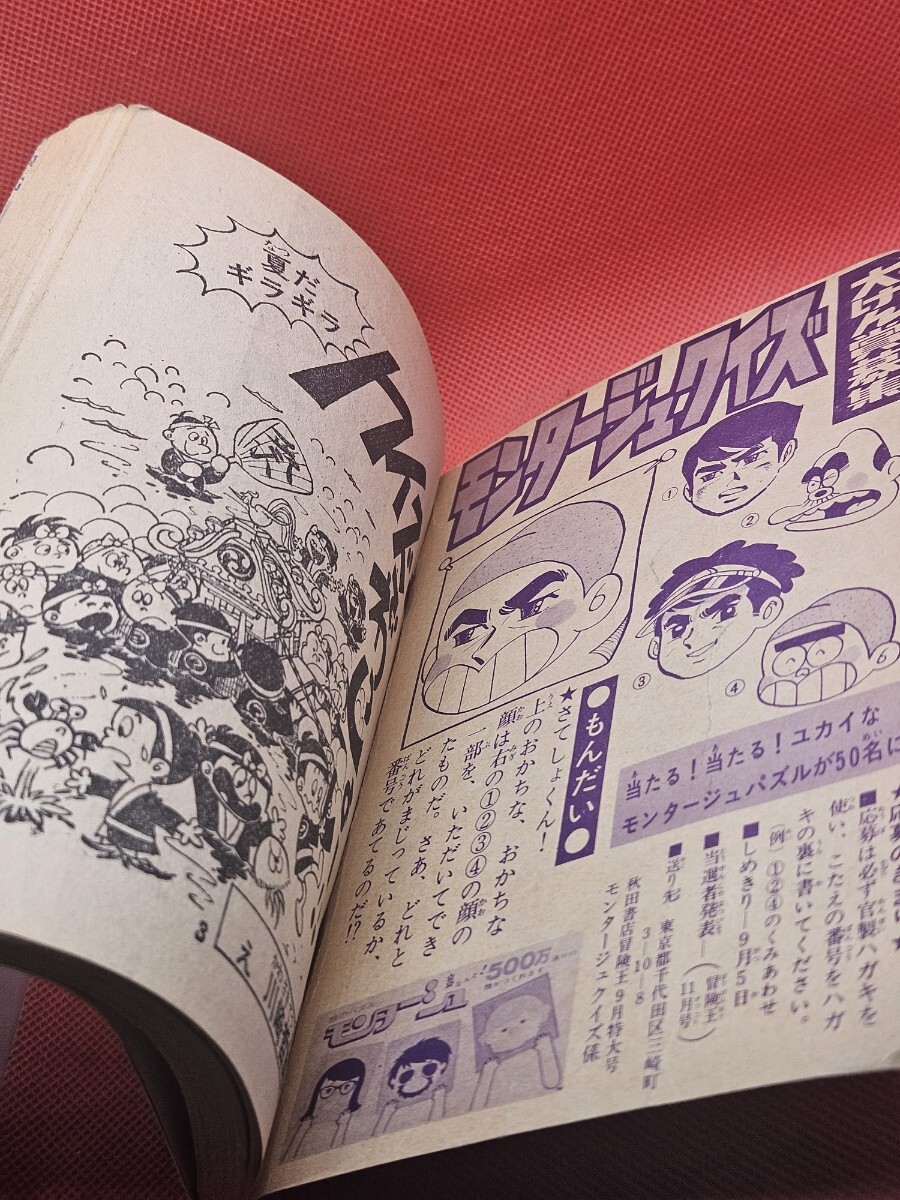 夏だ
ギラギラ
祭
3
え
大けん賞募集
モンタージュ・クイズ
①
②
③
④
●もんだい●
★さてしょくん！
上のおかちな、おかちな
顔は右の①②③④の顔の
一部を、いただいてでき
たものだ。さあ、どれと
どれがまじっているか、
番号であてるのだ!?
当たる！当たる！ユカイな
モンタージュパズルが50名に
★応募のきまり★
■応募は必ず官製ハガキを
使い、こたえの番号をハガ
キの裏に書いてください。
(例 ①②④のくみあわせ
■しめきり―9月5日
■当選者発表―(冒険王
11月号)
■送り先 東京都千代田区三崎町
3-10-8
秋田書店冒険王9月特大号
モンタージュクイズ係
500万
モンタージュ